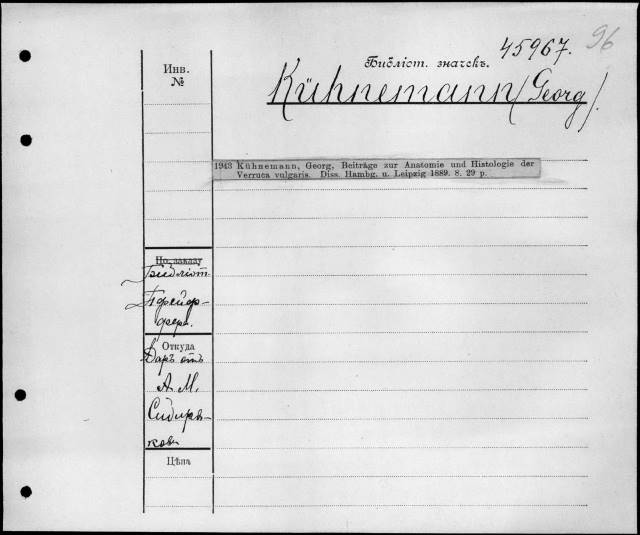 96
45967.
Инв.
№
Библіот. значекъ.
Kühnemann (Georg).
1943 Kühnemann, Georg, Beiträge zur Anatomie und Histologie der
Verruca vulgaris. Diss. Hambg. u. Leipzig 1889. 8. 29 p.
По заказу
Библіот.
Откуда
Даръ отъ
А. М.
Цѣна